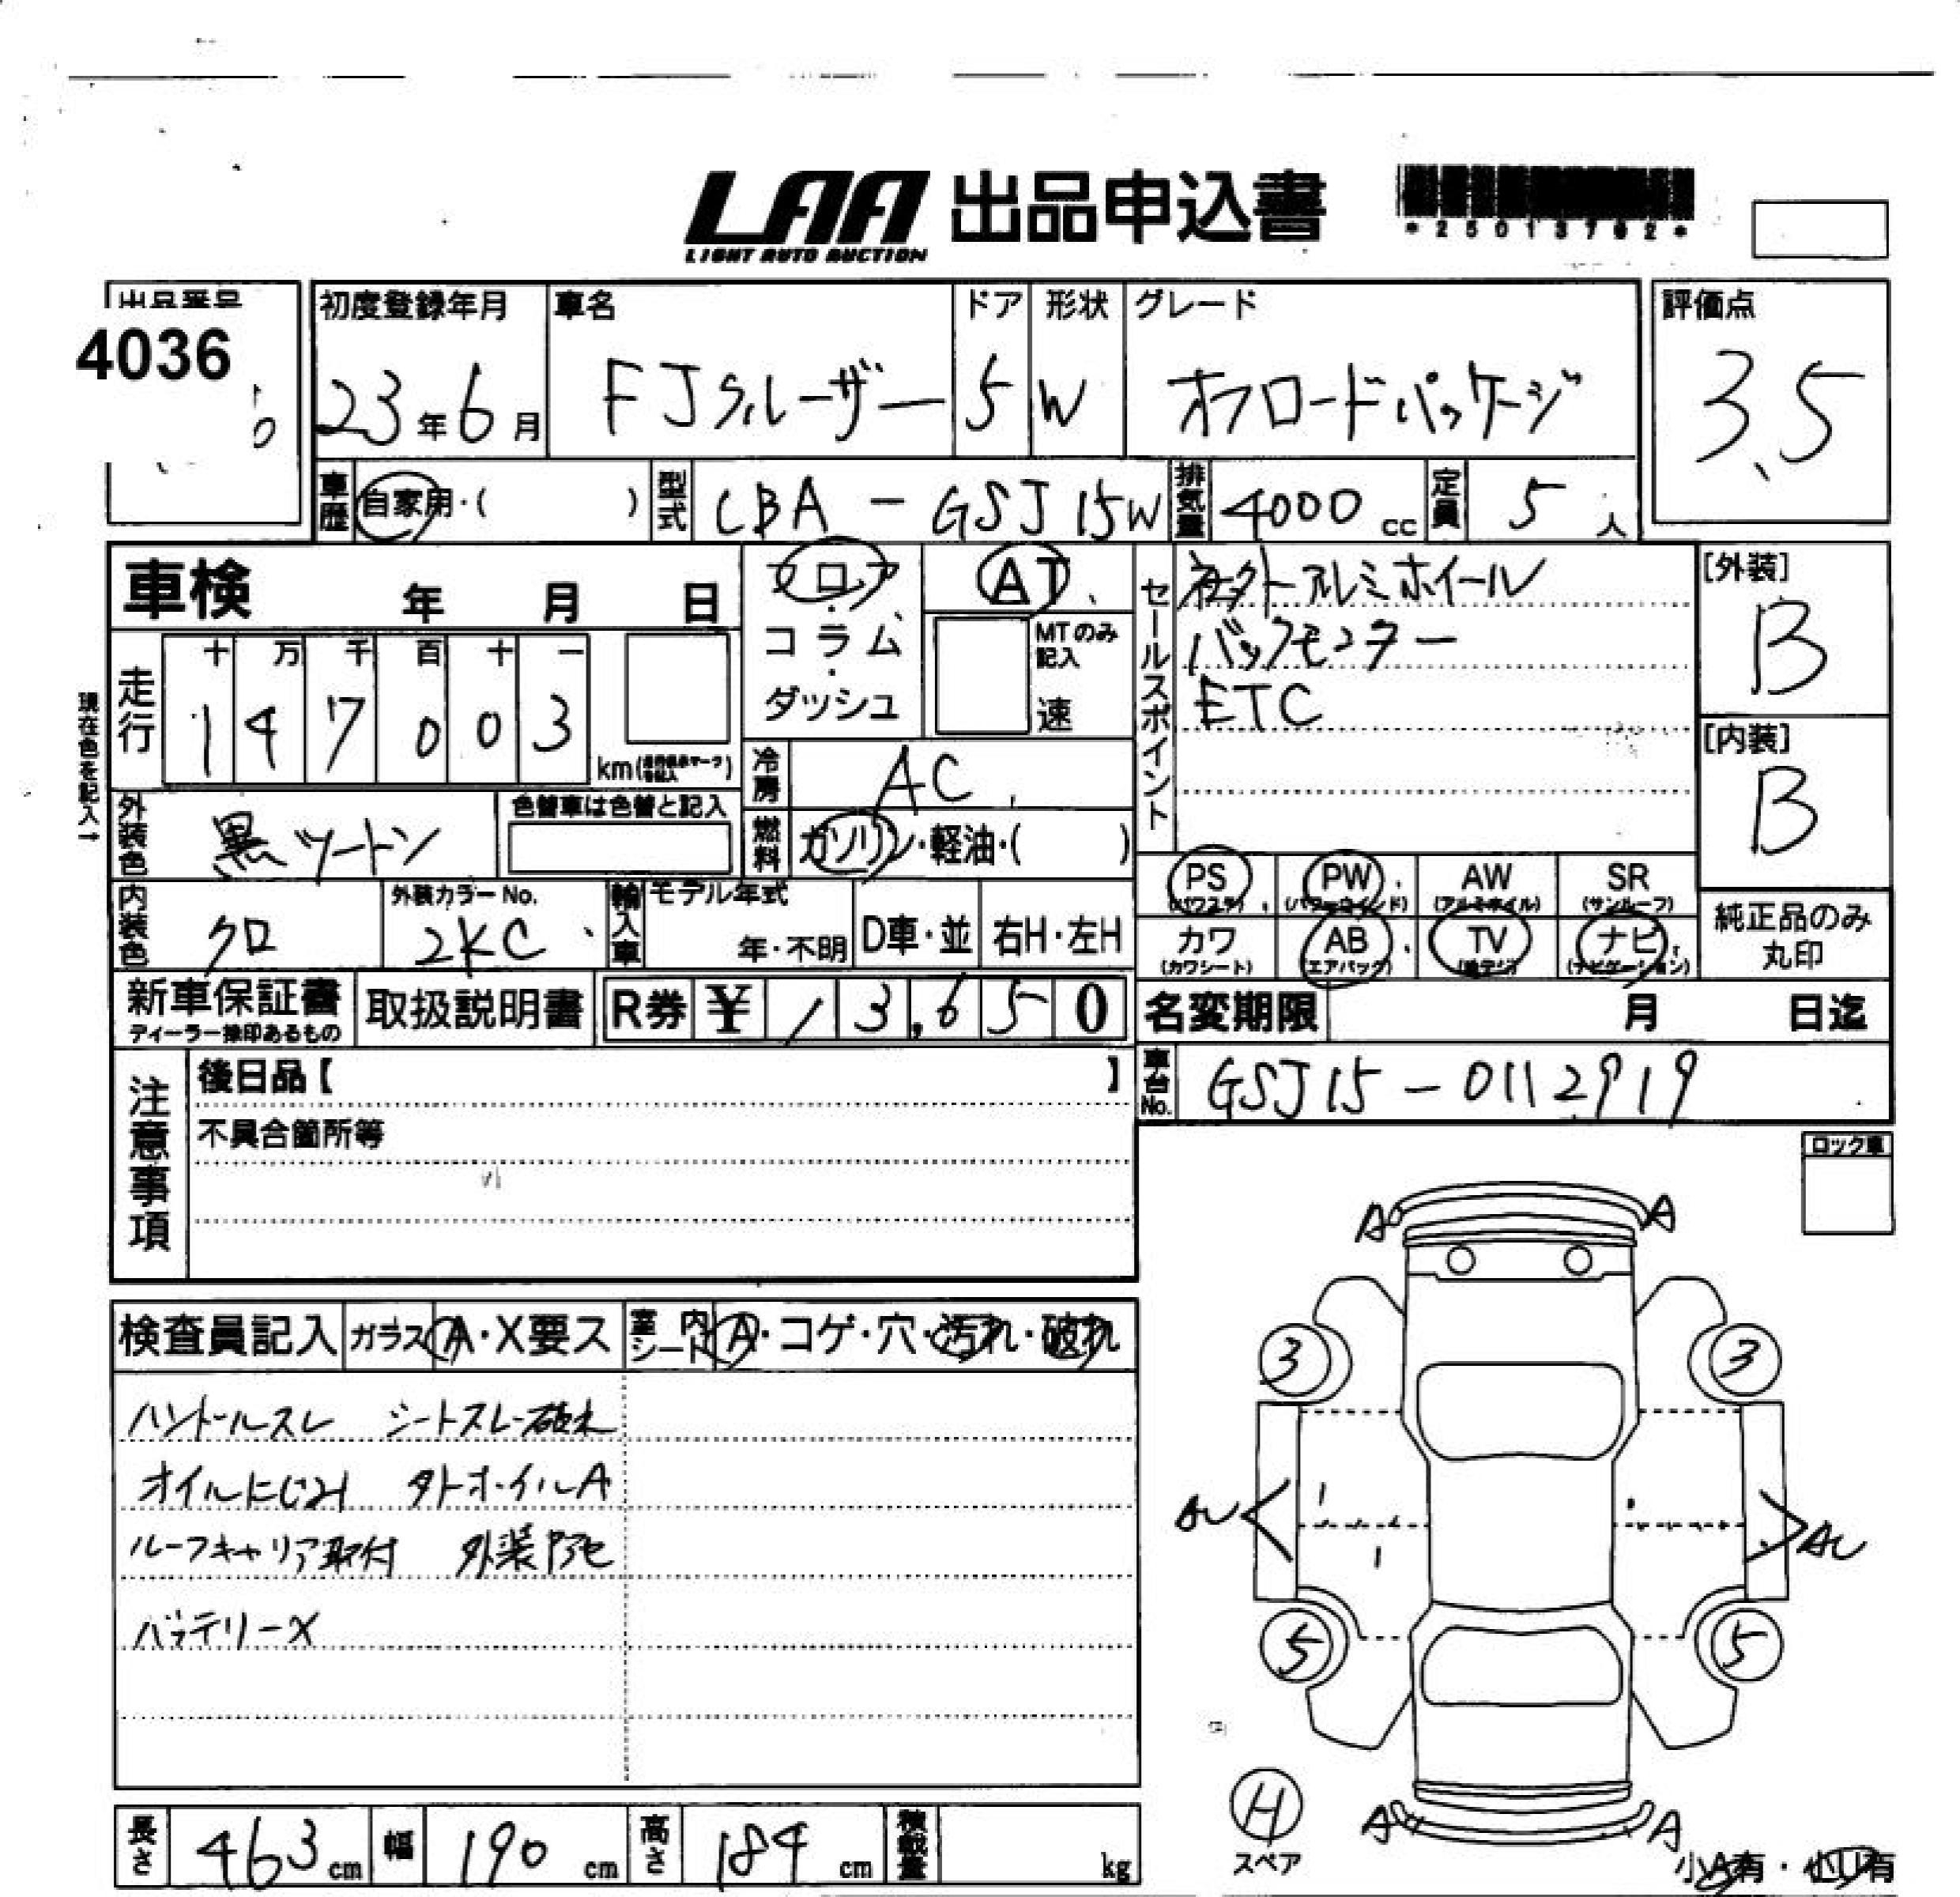 LAA 出品申込書
LIGHT AUTO AUCTION
*25013702*
出品番号
4036
初度登録年月
23年6月
車名
FJクルーザー
ドア
5
形状
W
グレード
オフロードパッケージ
評価点
3.5
車歴 自家用・( )
型式 CBA-GSJ15W
排気量 4000cc
定員 5人
車検 年 月 日
フロア・コラム・ダッシュ
AT
MTのみ記入
速
セールスポイント
社外アルミホイール
バックモニター
ETC
[外装]
B
[内装]
B
現在色を記入→
走行
十 万 千 百 十 一
1 4 7 0 0 3
km
冷房 AC
燃料 ガソリン・軽油・( )
外装色 黒ツートン
色替車は色替と記入
内装色 クロ
外装カラーNo.
2KC
輸入車
モデル年式
年・不明
D車・並
右H・左H
PS
(パワステ)
PW
(パワーウインド)
AW
(アルミホイル)
SR
(サンルーフ)
カワ
(カワシート)
AB
(エアバック)
TV
(地デジ)
ナビ
(ナビゲーション)
純正品のみ
丸印
新車保証書
ディーラー捺印あるもの
取扱説明書
R券 ¥ 13,650
名変期限 月 日迄
車台No. GSJ15-0112919
注意事項
後日品【 】
不具合箇所等
ロック車
検査員記入
ガラス A・X要ス
室内シート A・コゲ・穴・汚れ・破れ
ハンドルスレ シートスレ・破れ
オイルにじみ タトホイルA
ルーフキャリア取付 外装アセ
バッテリーX
A A
3 3
AU AU
5 5
H
スペア
A A
小A有・小U有
長さ 463cm
幅 190cm
高さ 184cm
積載量 kg